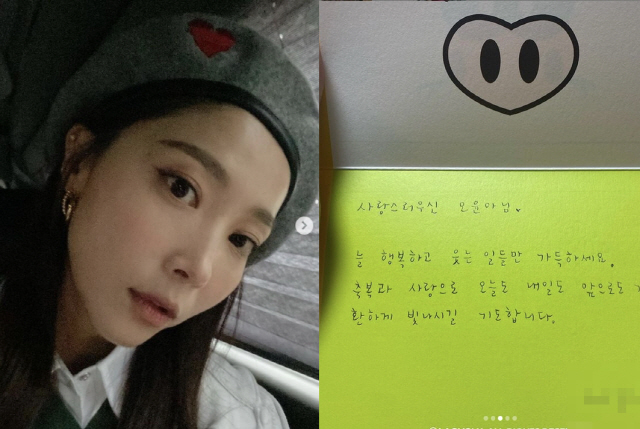 사랑스러우신 오윤아님.
늘 행복하고 웃는 일들만 가득하세요.
축복과 사랑으로 오늘도 내일도 앞으로도
환하게 빛나시길 기도합니다.